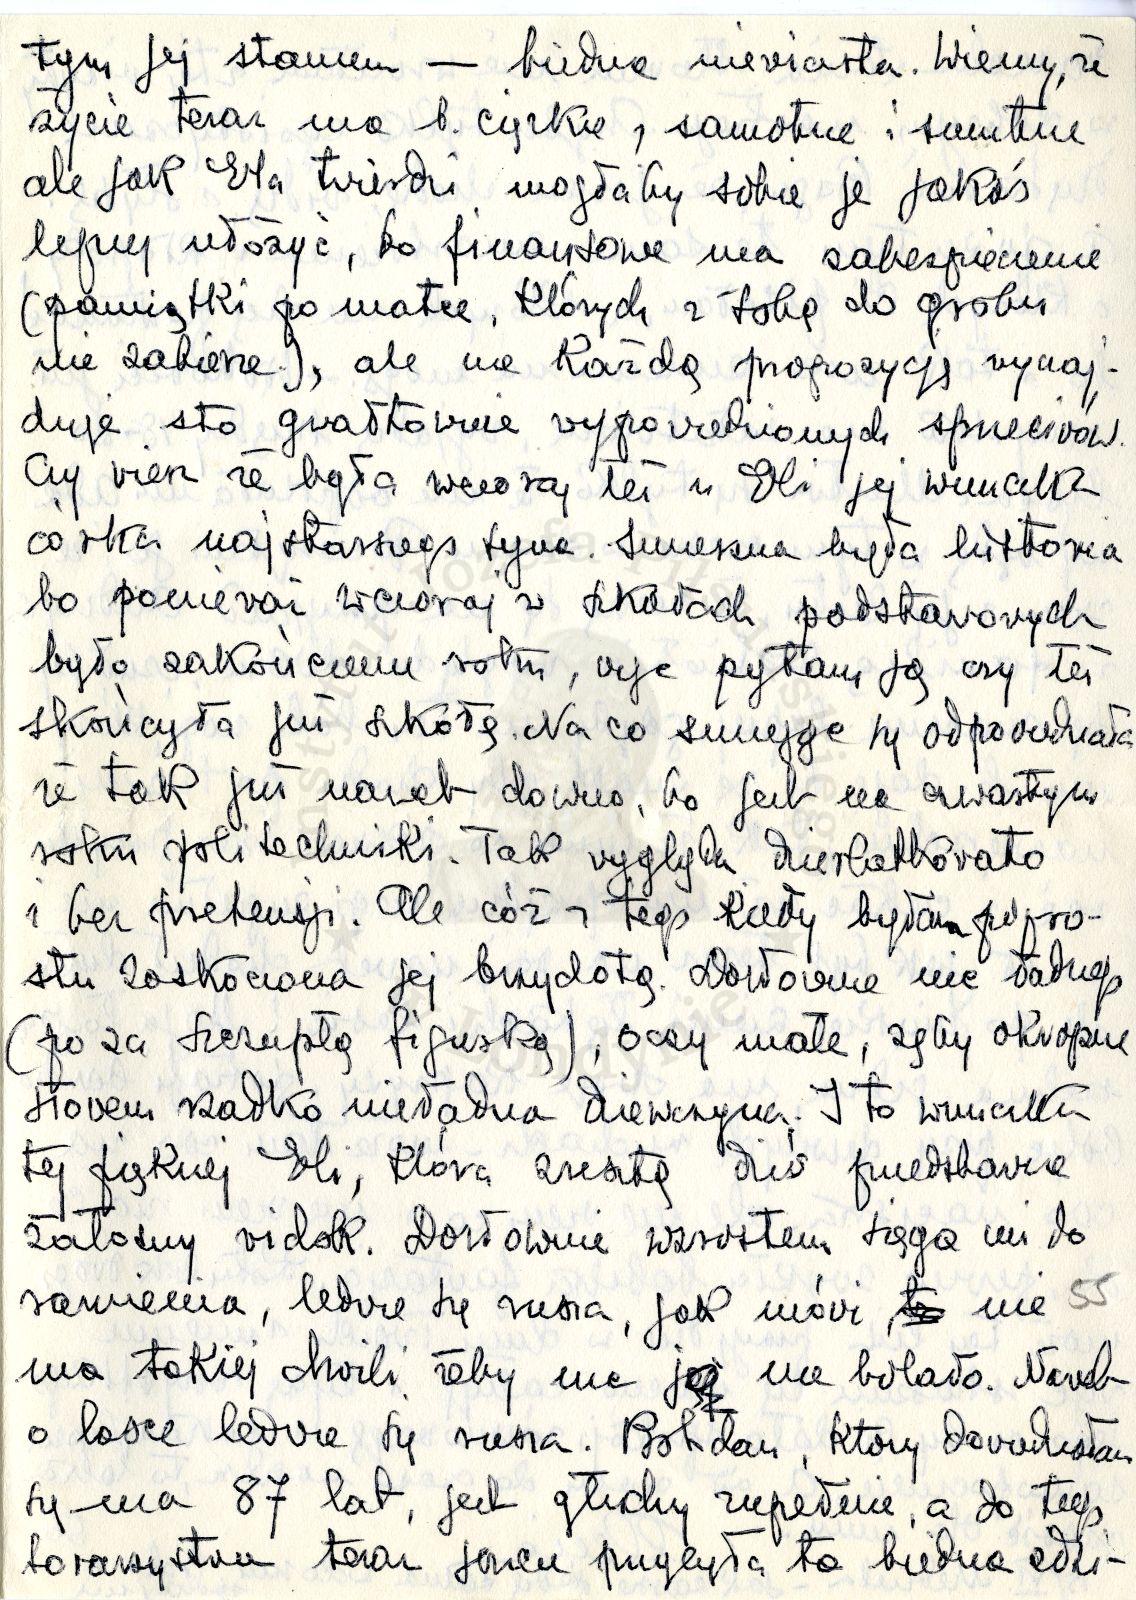 tym jej stanem — biedna niewiasta. Wiemy, że
życie teraz ma b. ciężkie, samotne i smutne
ale jak Ela twierdzi mogłaby sobie je jakoś
lepiej ułożyć, bo finansowe ma zabezpieczenie
(pamiątki po matce, których z sobą do grobu
nie zabierze), ale na każdą propozycję wynaj-
duje sto gwałtownie wypowiedzianych sprzeciwów.
Czy wiesz że była wczoraj też u Eli jej wnuczka
córka najstarszego syna. Śmieszna była historia
bo ponieważ wczoraj w szkołach podstawowych
było zakończenie roku, więc pytam ją czy też
skończyła już szkołę. Na co śmiejąc się odpowiedziała
że tak już nawet dawno, bo jest na czwartym
roku politechniki. Tak wygląda dzieciakowato
i bez pretensji. Ale cóż z tego kiedy byłam popro-
stu zaskoczona jej brzydotą. Dosłownie nic ładnego
(poza szczupłą figurką), oczy małe, zęby okropne
słowem rzadko nieładna dziewczyna. I to wnuczka
tej pięknej Eli, która zresztą dziś przedstawia
żałosny widok. Dosłownie wzrostem sięga mi do
ramienia, ledwie się rusza, jak mówi nie
ma takiej chwili żeby nic ją nie bolało. Nawet
o lasce ledwie się rusza. Bohdan, który dowiedziałam
się ma 87 lat, jest głuchy zupełnie, a do tego
towarzystwa teraz jeszcze przybyła ta biedna zdzi-
55
Instytut Józefa Piłsudskiego
w Londynie